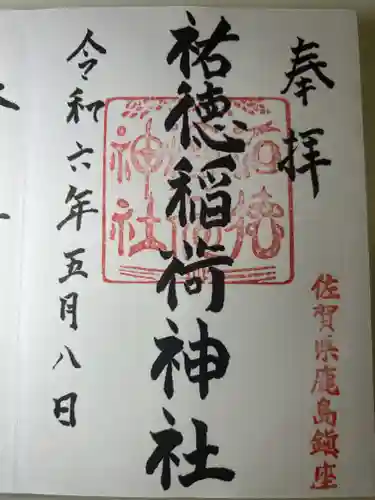 奉拝
佐賀県鹿島鎮座
祐徳稲荷神社
祐徳稲荷神社
令和六年五月八日